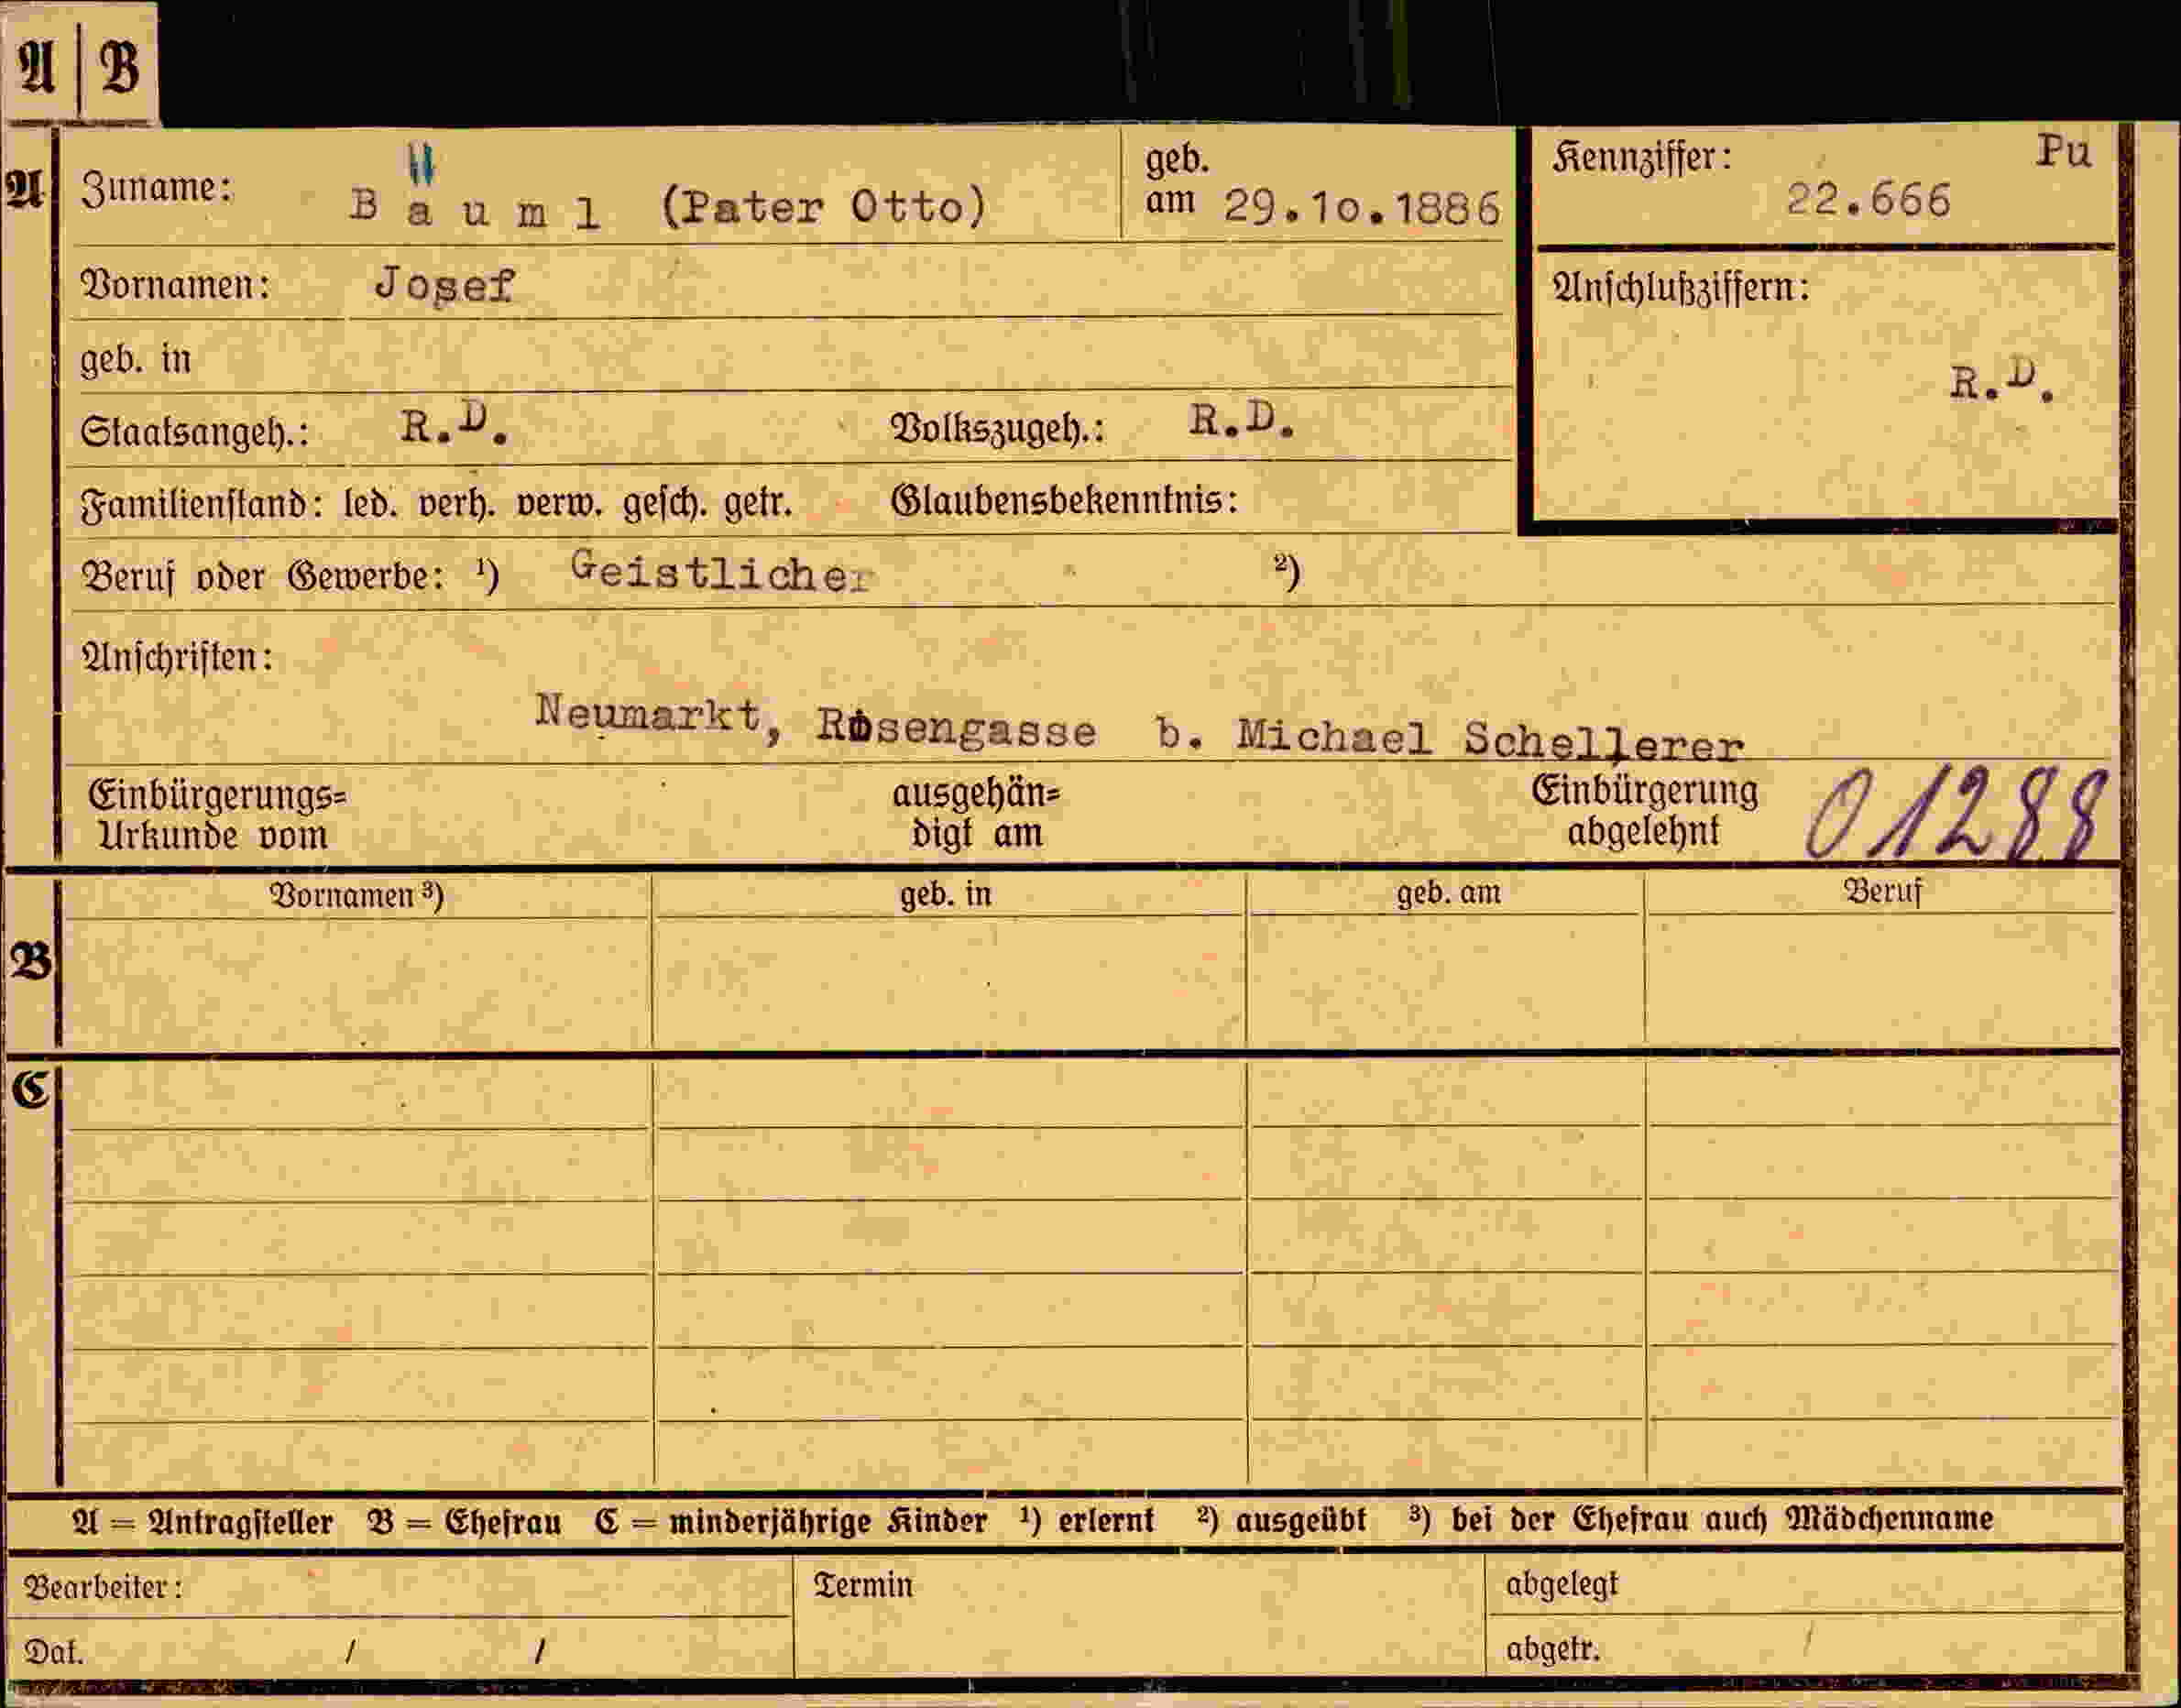 A | B
A Zuname: Bäuml (Pater Otto) geb. am 29.10.1886 Kennziffer: Pu 22.666
Vornamen: Josef Anschlußziffern:
geb. in
R.D.
Staatsangeh.: R.D. Volkszugeh.: R.D.
Familienstand: led. verh. verw. gesch. getr. Glaubensbekenntnis:
Beruf oder Gewerbe: ¹) Geistlicher ²)
Anschriften:
Neumarkt, Rosengasse b. Michael Schellerer
Einbürgerungs= ausgehän= Einbürgerung 01288
Urkunde vom digt am abgelehnt
Vornamen ³) geb. in geb. am Beruf
B
C
A = Antragsteller B = Ehefrau C = minderjährige Kinder ¹) erlernt ²) ausgeübt ³) bei der Ehefrau auch Mädchenname
Bearbeiter: Termin abgelegt
Dat. / / abgetr. /